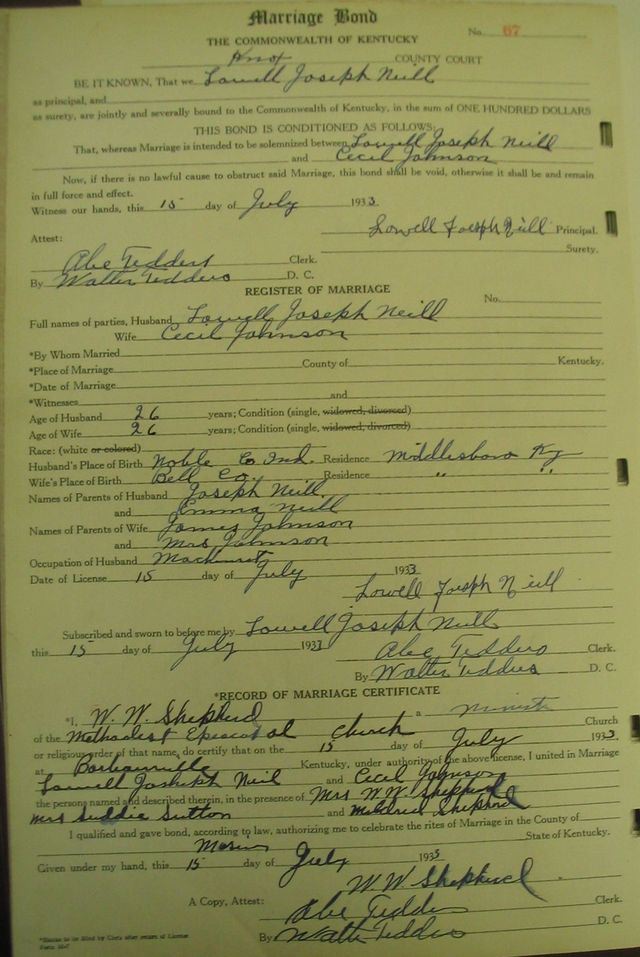 Marriage Bond
No. 67
THE COMMONWEALTH OF KENTUCKY
Knox COUNTY COURT
BE IT KNOWN, That we Lowell Joseph Neill
as principal, and
as surety, are jointly and severally bound to the Commonwealth of Kentucky, in the sum of ONE HUNDRED DOLLARS
THIS BOND IS CONDITIONED AS FOLLOWS:
That, whereas Marriage is intended to be solemnized between Lowell Joseph Neill
and Cecil Johnson
Now, if there is no lawful cause to obstruct said Marriage, this bond shall be void, otherwise it shall be and remain
in full force and effect.
Witness our hands, this 15 day of July 1933
Lowell Joseph Neill Principal.
Attest: Surety.
Abe Tedders Clerk.
By Walter Tedders D. C.
REGISTER OF MARRIAGE
No.
Full names of parties, Husband Lowell Joseph Neill
Wife Cecil Johnson
*By Whom Married
*Place of Marriage County of Kentucky.
*Date of Marriage
*Witnesses and
Age of Husband 26 years; Condition (single, widowed, divorced)
Age of Wife 26 years; Condition (single, widowed, divorced)
Race: (white or colored)
Husband's Place of Birth Noble Co Ind. Residence Middlesboro Ky
Wife's Place of Birth Bell Co. Residence " "
Names of Parents of Husband Joseph Neill
and Emma Neill
Names of Parents of Wife James Johnson
and Mrs Johnson
Occupation of Husband
Date of License 15 day of July 1933
Lowell Joseph Neill
Subscribed and sworn to before me by Lowell Joseph Neill
this 15 day of July 1933
Abe Tedders Clerk.
By Walter Tedders D. C.
*RECORD OF MARRIAGE CERTIFICATE
*I, W. W. Shepherd a Minister
of the Methodist Episcopal Church Church
or religious order of that name, do certify that on the 15 day of July 1933
at Barbourville Kentucky, under authority of the above license, I united in Marriage
Lowell Joseph Neil and Cecil Johnson
the persons named and described therein, in the presence of Mrs W W Shepherd
Mrs Suddie Sutton and Mildred Shepherd
I qualified and gave bond, according to law, authorizing me to celebrate the rites of Marriage in the County of
State of Kentucky.
Given under my hand, this 15 day of July 1933
W. W. Shepherd
A Copy, Attest: Abe Tedders Clerk.
By Walter Tedders D. C.